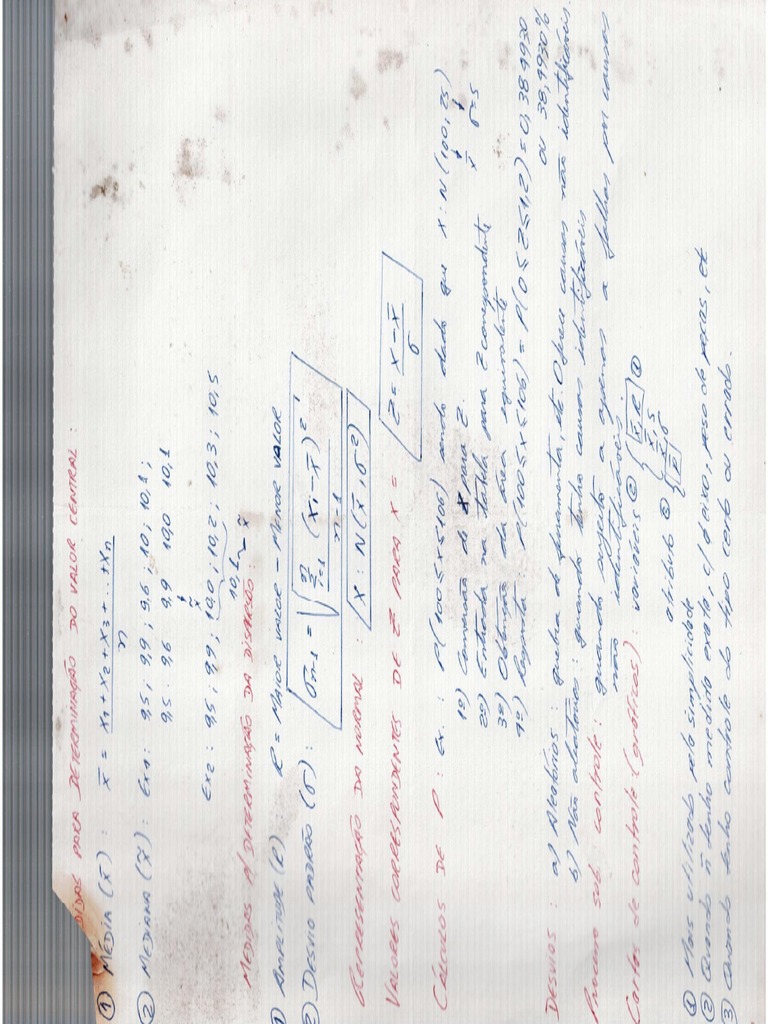 DIDAS PARA DETERMINAÇÃO DO VALOR CENTRAL :
① MÉDIA (x̄) : x̄ = x₁ + x₂ + x₃ + ... + xₙ / n
② MEDIANA (x̃) : Ex1 : 9,5 ; 9,9 ; 9,6 ; 10 ; 10,1 ;
9,5 : 9,6 9,9 10,0 10,1
x̃
Ex2 : 9,5 ; 9,9 ; 10,0 ; 10,2 ; 10,3 ; 10,5
10,1 → x̃
MEDIDAS P/ DETERMINAÇÃO DA DISPERSÃO :
① AMPLITUDE (R) R = MAIOR VALOR - MENOR VALOR
② DESVIO PADRÃO (σ) : σn-1 = √ Σ i=1 (xi - x̄)² / n-1
REPRESENTAÇÃO DA NORMAL : X : N (x̄, σ²)
VALORES CORRESPONDENTES DE Z PARA X = Z = x - x̄ / σ
CÁLCULOS DE P : Ex. : P(100 ≤ x ≤ 106) sendo dado que X : N (100, 25)
x̄ σ=5
1º) Conversão de X para Z.
2º) Entrada na tabela para Z correspondente
3º) Obtenção da área equivalente
4º) Resposta P(100 ≤ x ≤ 106) = P(0 ≤ Z ≤ 1,2) = 0,384930
ou 38,4930%
DESVIOS : a) Aleatórios : quebra de ferramenta, etc. O fruto causas não identificáveis.
b) Não aleatórios : quando tenho causas identificáveis
Processo sob controle : quando sujeito a apenas a falhas por causas
não identificáveis
Cartas de controle (gráficos) : variáveis ② { x̄, R ①
x̄, S
x̃, σ
atributo ③ { P
① Mais utilizado pela simplicidade
② Quando ñ tenho medida exata, c/ d eixo, peso de peças, etc
③ Quando tenho controle do tipo certo ou errado.